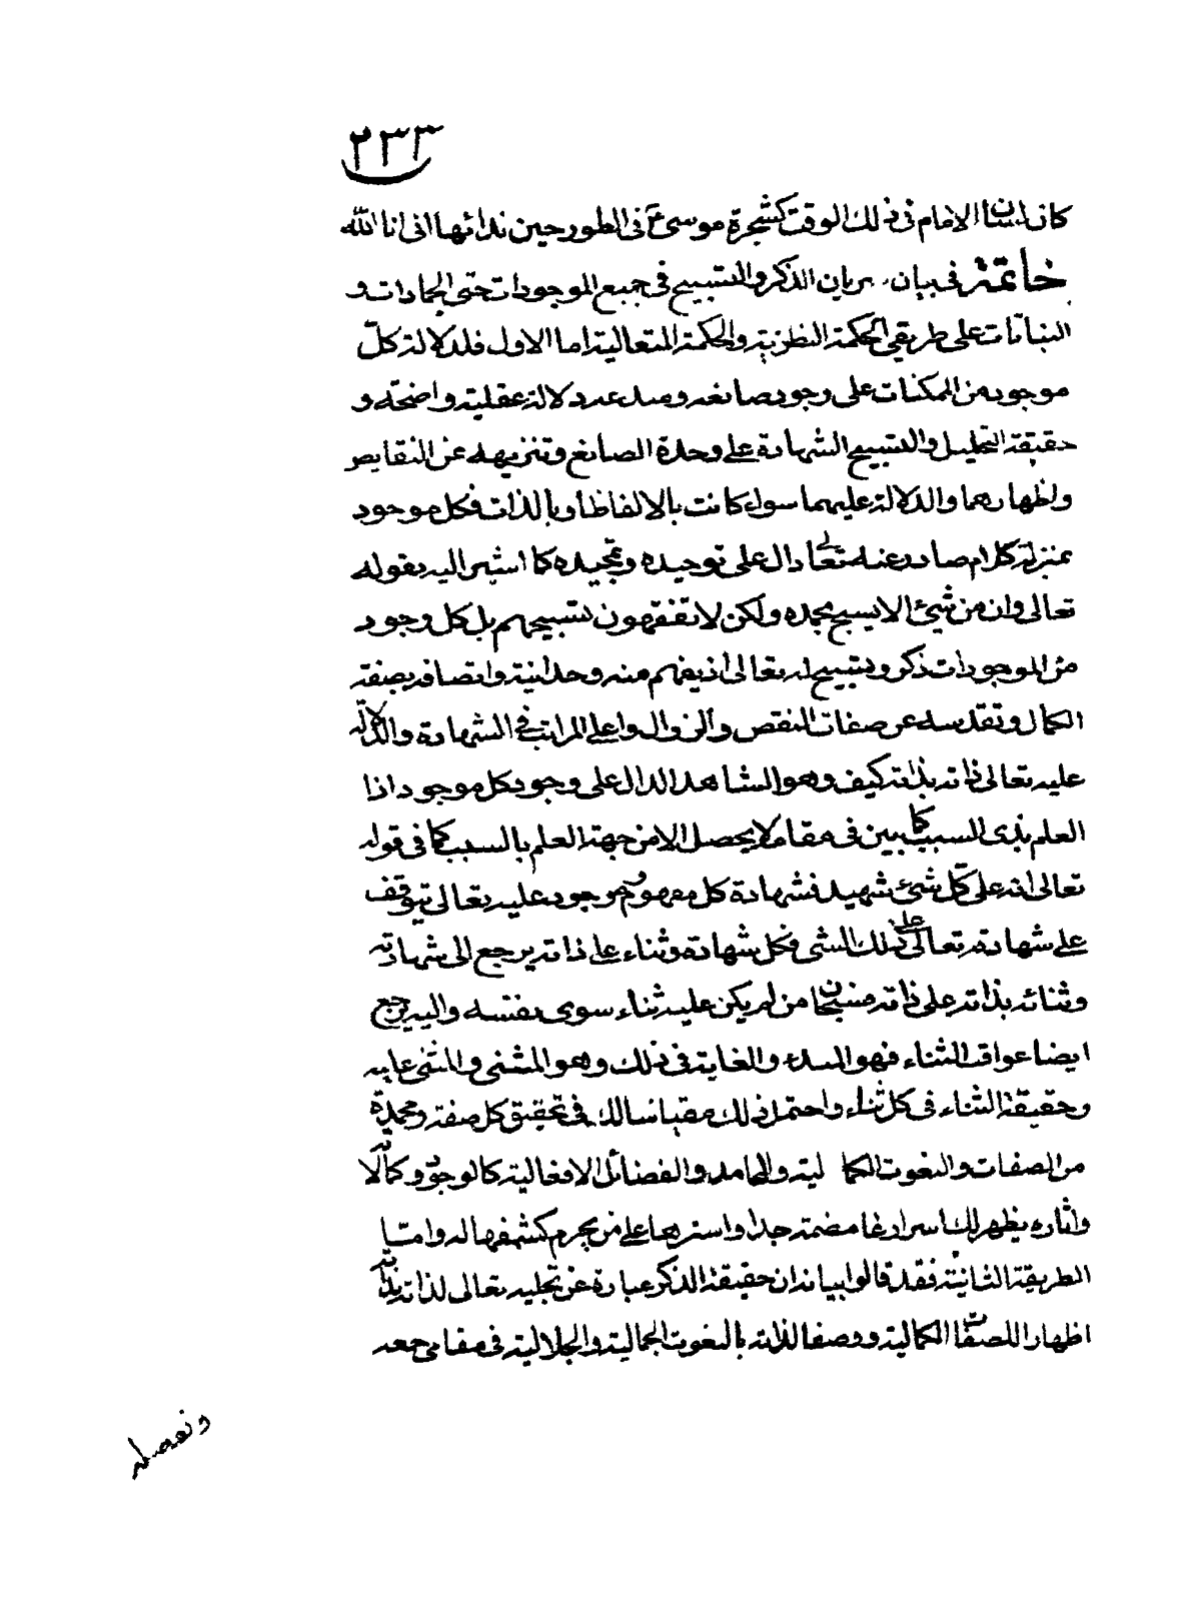 ٢٣٣
كان لسان الامام فى ذلك الوقت كشجرة موسى ع فى الطور حين ندائها انى انا الله
خاتمة فى بيان سريان الذكر والتسبيح فى جميع الموجودات حتى الجمادات و
النباتات على طريقى الحكمة النظرية والحكمة المتعالية اما الاول فلدلالة كل
موجود من الممكنات على وجود صانعه ومبدعه دلالة عقلية واضحة و
حقيقة التهليل والتسبيح الشهادة على وحدة الصانع وتنزيهه عن النقايص
واظهارهما والدلالة عليهما سواء كانت بالالفاظ او بالذات فكل موجود
بمنزلة كلام صادر عنه تعالى دال على توحيده وتمجيده كما اشير اليه بقوله
تعالى وان من شيئ الا يسبح بحمده ولكن لا تفقهون تسبيحهم بل كل وجود
من الموجودات ذكر وتسبيح له تعالى اذ يفهم منه وحدانيته واتصافه بصفة
الكمال وتقدسه عن صفات النقص والزوال واعلى المراتب فى الشهادة والدلالة
عليه تعالى ذاته بذاته كيف وهو الشاهد الدال على وجود كل موجود اذا
العلم بذى السبب كما بين فى مقامه لا يحصل الا من جهة العلم بالسبب كما فى قوله
تعالى انه على كل شئ شهيد فشهادة كل مفهوم وموجود عليه تعالى يتوقف
على شهادته تعالى على ذلك الشى فكل شهادة وثناء على ذاته يرجع الى شهادته
وثنائه بذاته على ذاته فسبحان من لم يكن عليه ثناء سوى نفسه واليه يرجع
ايضا عواقب الثناء فهو المبدء والغاية فى ذلك وهو المثنى والمثنى عليه
وحقيقة الثناء فى كل ثناء واجعل ذلك مقياسا لك فى تحقيق كل صفة ومحمدة
من الصفات والنعوت الكمالية والمحامد والفضائل الافعالية كالوجود وكمالاته
واثاره يظهر لك اسرار غامضة جدا واسترها على من يحرم كشفها له واما
الطريقة الثانية فقد قالوا بيانه ان حقيقة الذكر عبارة عن تجليه تعالى لذاته بذاته
اظهارا للصفات الكمالية ووصفا لذاته بالنعوت الجمالية والجلالية فى مقامى جمعه
وتفصيله